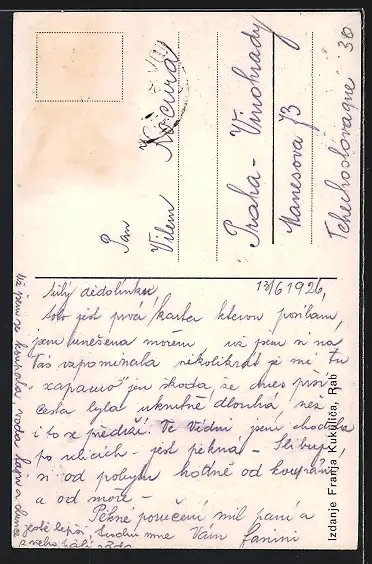 Pan
Vilem Kočura
Praha - Vinohrady
Manesova 73
Tchechoslovaque 30
13/6 1926,
Milý dědolínku
toto jest prvá karta kterou posílám,
jsem unešena mořem už jsem si na
Vás vzpomínala několikrát je mi tu
jen škoda, že dnes prší
cesta byla ukrutně dlouhá, než
i to x předrží. Ve Vídni jsem chodila
po ulicích - jest pěkná - Slibuji
si od pobytu hodně od koupání
a od moře -
Pěkné poručení mil. paní a
Vám Fanini
Už jsem se koupala, voda
ještě lepší
Izdanje Franja Kukulica, Rab